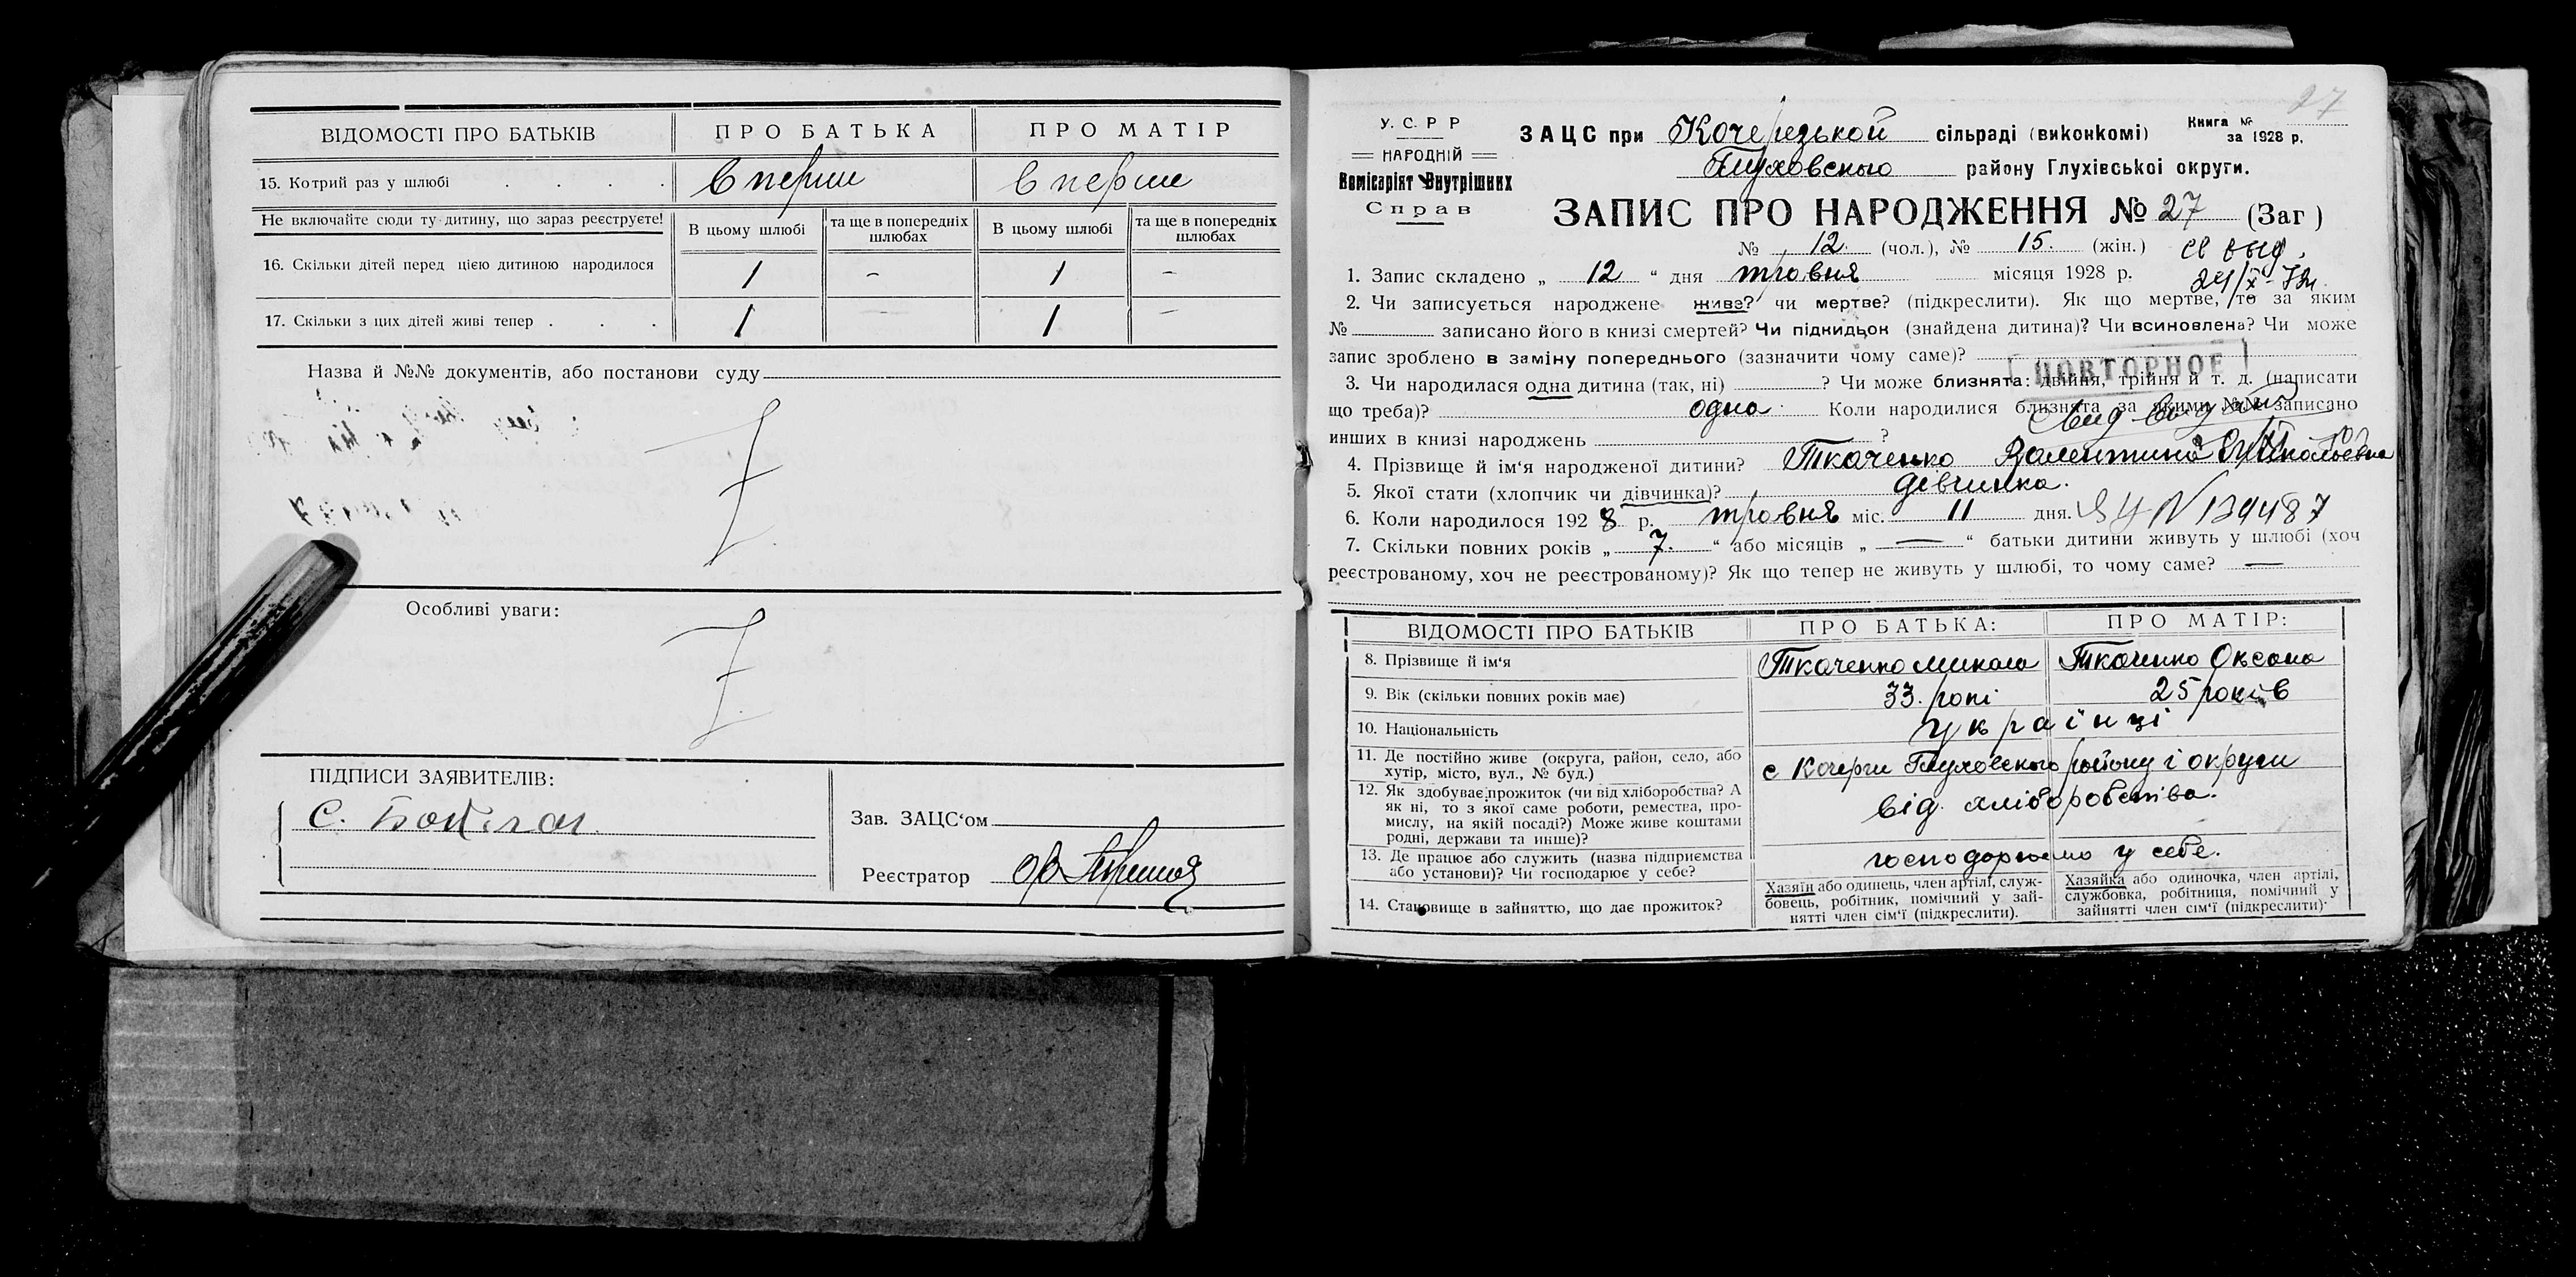 ВІДОМОСТІ ПРО БАТЬКІВ ПРО БАТЬКА ПРО МАТІР
15. Котрий раз у шлюбі . . . . Вперше Вперше
Не включайте сюди ту дитину, що зараз реєструєте!
В цьому шлюбі та ще в попередніх шлюбах В цьому шлюбі та ще в попередніх шлюбах
16. Скільки дітей перед цією дитиною народилося 1 – 1 –
17. Скільки з цих дітей живі тепер . . . 1 — 1 –
Назва й №№ документів, або постанови суду
Z
Особливі уваги:
Z
ПІДПИСИ ЗАЯВИТЕЛІВ:
С.
Зав. ЗАЦС‘ом
Реєстратор
27
У. С. Р Р
НАРОДНІЙ
Комісаріят Внутрішних
Справ
ЗАЦС при Кочерезькой сільраді (виконкомі)
Книга №
за 1928 р.
Глуховского району Глухівської округи.
ЗАПИС ПРО НАРОДЖЕННЯ № 27 (Заг )
№ 12. (чол.), № 15. (жін.) св выд.
1. Запис складено „ 12 “ дня травня місяця 1928 р. 24/X-72г.
2. Чи записується народжене живе? чи мертве? (підкреслити). Як що мертве, то за яким
№ записано його в книзі смертей? Чи підкидьок (знайдена дитина)? Чи всиновлена? Чи може
запис зроблено в заміну попереднього (зазначити чому саме)?
ПОВТОРНОЕ
3. Чи народилася одна дитина (так, ні) ? Чи може близнята: двійня, трійня й т. д. (написати
що треба)? одна Коли народилися близнята за якими №№ записано
инших в книзі народжень ?
4. Прізвище й ім‘я народженої дитини? Ткаченко Валентина
5. Якої стати (хлопчик чи дівчинка)? дівчинка.
6. Коли народилося 1928 р. травня міс. 11 дня. N 139487
7. Скільки повних років „ 7. “ або місяців „ — “ батьки дитини живуть у шлюбі (хоч
реєстрованому, хоч не реєстрованому)? Як що тепер не живуть у шлюбі, то чому саме? —
ВІДОМОСТІ ПРО БАТЬКІВ ПРО БАТЬКА: ПРО МАТІР:
8. Прізвище й ім‘я Ткаченко Микола Ткаченко Оксана
9. Вік (скільки повних років має) 33. роки 25 років
10. Національність українці
11. Де постійно живе (округа, район, село, або
хутір, місто, вул., № буд.)
с Кочерги Глуховского району і округи
12. Як здобуває прожиток (чи від хліборобства? А
як ні, то з якої саме роботи, ремества, про-
мислу, на якій посаді?) Може живе коштами
родні, держави та инше)?
від хліборобства.
13. Де працює або служить (назва підприємства
або установи)? Чи господарює у себе?
господарюємо у себе.
14. Становище в зайняттю, що дає прожиток?
Хазяїн або одинець, член артілі, служ-
бовець, робітник, помічний у зай-
нятті член сім‘ї (підкреслити).
Хазяйка або одиночка, член артілі,
службовка, робітниця, помічний у
зайнятті член сім‘ї (підкреслити)